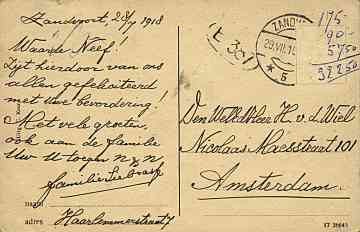 Zandvoort, 28/7 1918
Waarde Neef!
Zijt hierdoor van ons
allen gefeliciteerd
met Uwe bevordering!
Met vele groeten,
ook aan de familie
Uw U toegen n n
familie
naam
adres Haarlemmerstraat 7
ZANDV
29.VII.1
6
175
90
57.50
322.50
Den WelEdHeer H. v. d. Wiel
Nicolaas Maesstraat 101
Amsterdam.